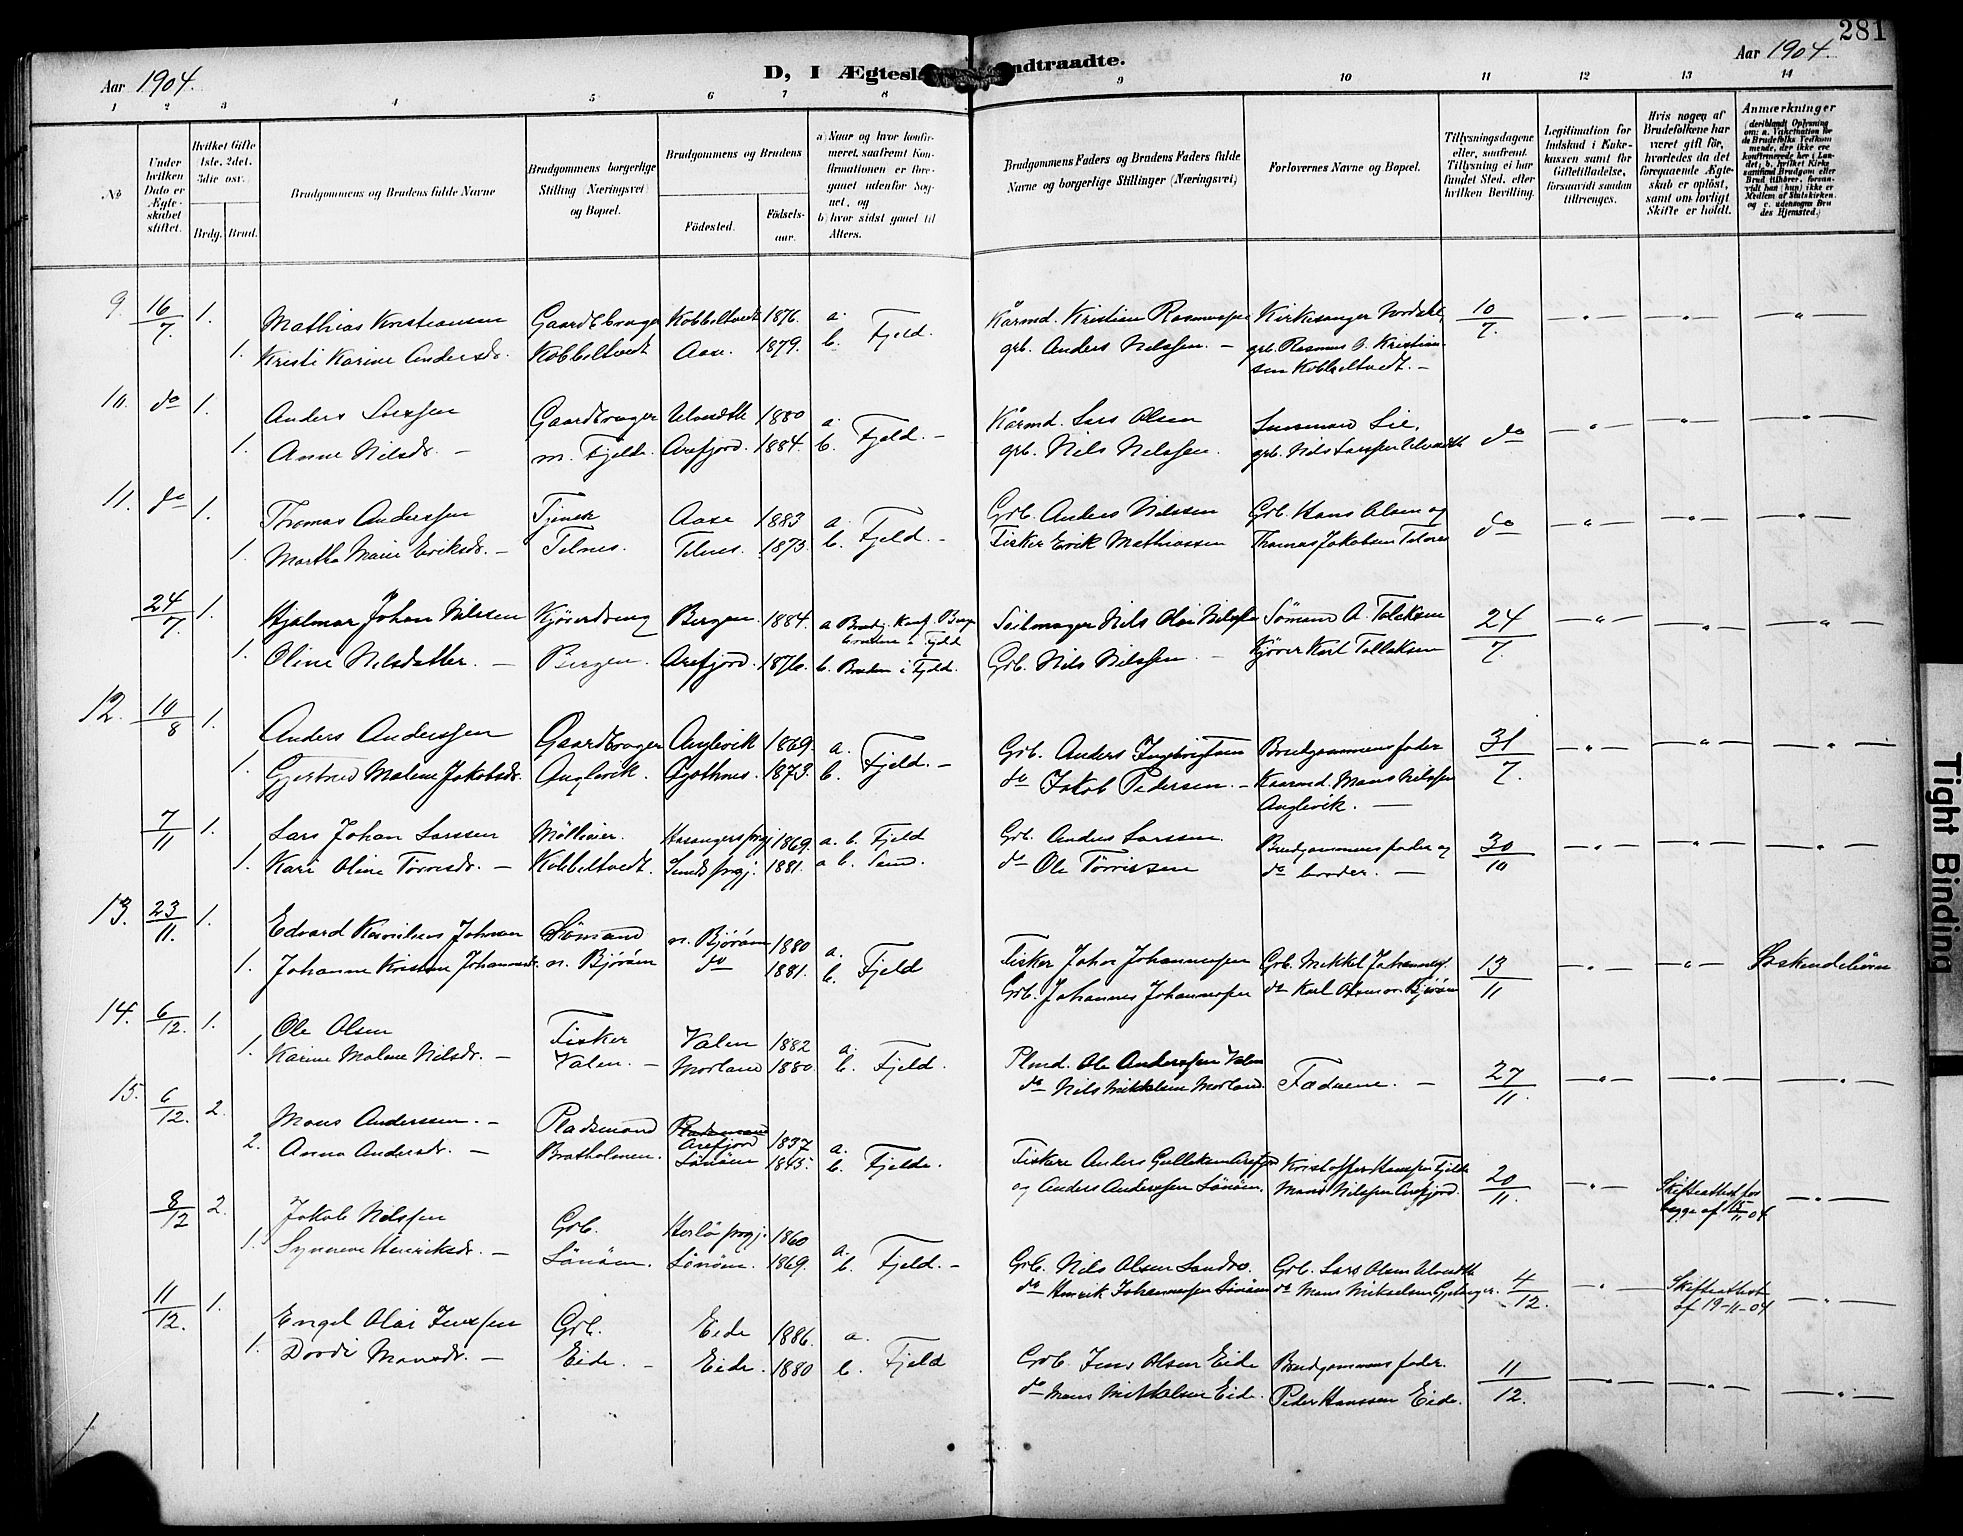 281
Aar 1904.
D, I Ægtesk
ndtraadte.
Aar 1904.
1 2 3 4 5 6 7 8 9 10 11 12 13 14
No
Under hvilken Dato er Ægteskabet stiftet.
Hvilket Gifte (1ste, 2det, 3die osv.)
Brdg. Brud.
Brudgommens og Brudens fulde Navne
Brudgommens borgerlige Stilling (Næringsvei) og Bopæl.
Brudgommens og Brudens
Fødested.
Fødselsaar.
a) Naar og hvor konfirmeret, saafremt Konfirmationen er foregaaet udenfor Sognet, og
b) hvor sidst gaaet til Alters.
Brudgommens Faders og Brudens Faders fulde Navne og borgerlige Stillinger (Næringsvei)
Forlovernes Navne og Bopæl.
Tillysningsdagene eller, saafremt Tillysning ei har fundet Sted, efter hvilken Bevilling.
Legitimation for Indskud i Enkekassen samt for Giftetilladelse, forsaavidt saadan tiltrænges.
Hvis nogen af Brudefolkene har været gift før, hvorledes da det foregaaende Ægteskab er opløst, samt om lovligt Skifte er holdt.
Anmærkninger
9. 16/7 1. Mathias Kristiansen Gaardbruger Kobbeltvedt 1876. a. Kårmd. Kristian Rasmussen Kirkesanger Nordahl, 10/7
1. Kristi Karine Andersdr. Kobbeltvedt Aase. 1879. b. Fjeld. grb. Anders Nilssen. — grb. Rasmus O. Kristian-
sen Kobbeltvedt. —
10. do 1. Anders Larssen Gaardbruger Ulvedth 1880 a. Kårmd. Lars Olsen Lensmand Lie,
1. Anne Nilsdr. — n. Fjelde. Arefjord. 1884. b. Fjeld. — grb. Nils Nilssen. grb. Nils Larssen Ulvedth do
11. do 1. Thomas Anderssen Tjener Aase 1883 a. Grb. Anders Nilssen Grb. Hans Olsen og
1. Martha Marie Eriksdr. — Telnes. Telnes. 1873. b. Fjeld. — Fisker Erik Mathiassen Thomas Jakobsen Telnes do
24/7 1. Hjalmar Johan Nilssen Kjøredreng Bergen 1884. a Brudg. Konf. Bergen Seilmager Nils Olai Nilssen Sømand A. Tolleksen 24/7
bruden i Fjeld
1. Oline Nilsdatter. — Bergen. Arefjord. 1876. b. Bruden i Fjeld. Grb. Nils Nilssen. — Kjører Karl Tolleksen
12. 10/8 1. Anders Anderssen Gaardbruger Anglevik 1869. a. Grb. Anders Ingebrigtsen Brudgommens fader 31/7.
1. Gjertrud Malene Jakobsdr. Anglevik. Gjothnes. 1873. b. Fjeld. — do Jakob Pedersen. — Kaarmd. Mons Nilssen
Anglevik. —
7/11 1. Lars Johan Larssen Mølleier. Hasangers prgj 1869. a. b. Fjeld Grb. Anders Larssen. Brudgommens fader og 30/10
1. Kari Oline Tørresdr. — Kobbeltvedt. Sunds prgj. 1881. a b. Sund. do Ole Tørrissen do broder. —
13. 23/11. 1. Edvard Kornelius Johnsen Sømand n. Bjørøen 1880 a. Fisker John Johannessen Grb. Mikkel Johanness. 13/11 Søskendebørn
1. Johanne Kristine Johannesdr. n. Bjørøen do 1881. b. Fjeld Grb. Johannes Johannessen do Karl Olsen n. Bjørøen
14. 6/12. 1. Ole Olsen Fisker Valen 1882 a. Plmd. Ole Anderssen Valen
1. Karine Malene Nilsdr. — Valen. — Morland 1880. b. Fjeld. do Nils Mikkelsen Morland. Fædrene. — 27/11.
15. 6/12. 2. Mons Anderssen. — Pladsmand Pladsmand Arefjord 1837 a. Fiskere Anders Gulleksen Arefjord Kristoffer Hanssen Fjelde 20/11. Skifteattest for
2. Anna Andersdr. — Bratholmen. Sønøen 1845. b. Fjelde. og Anders Anderssen Sønøen. Mons Nilssen Arefjord. begge af 15/11 04
8/12 2. Jakob Nilssen Grb. Herlø prgj. 1860 a. Grb. Nils Olsen Landro. Grb. Lars Olsen Ulvedth 4/12. Skifteattest
1. Synneve Henriksdr. — Sønøen. Sønøen. 1869. b. Fjeld. — do Henrik Johannessen Sønøen do Mons Mikkelsen af 19-11-04
11/12. 1. Engel Olai Jenssen Grb. Eide 1886. a. Grb. Jens Olsen Eide Brudgommens fader. 11/12.
1. Dordi Monsdr. — Eide. — Eide. 1880 b. Fjeld do Mons Mikkelsen Eide. Peder Hanssen Eide.
Tight Binding